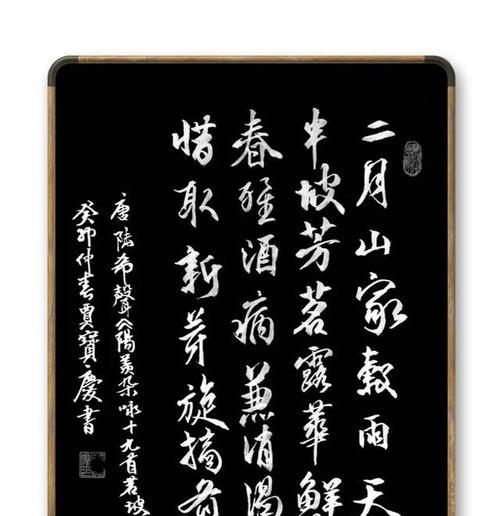 二月山家穀雨天
半坡芳茗露華鮮
春酒病兼消渴
惜取新芽旋摘
唐陸希聲陽羨杂咏十九首茗坡
癸卯仲春賈寶慶書